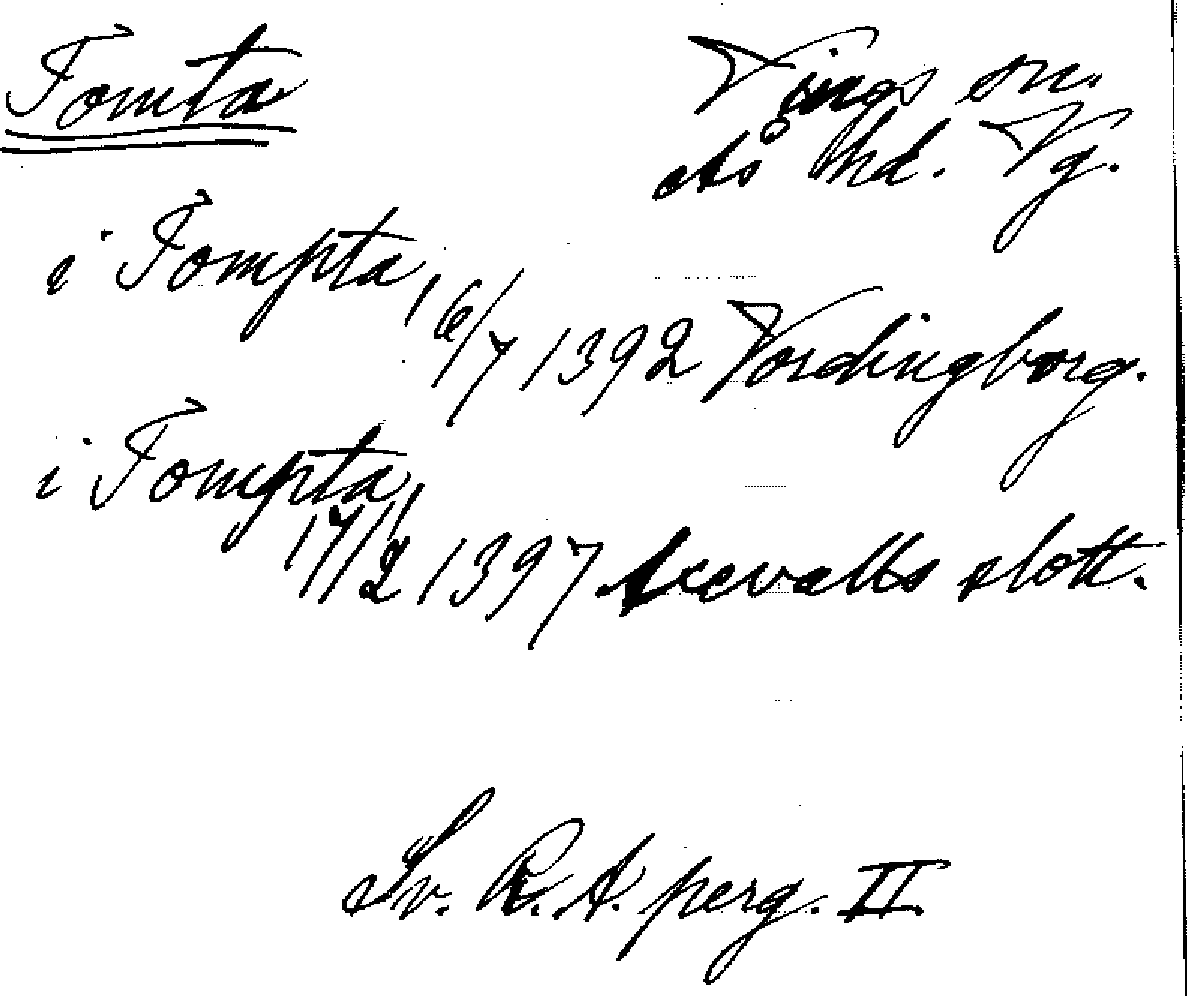 Tomta
Vings sn.
Ås hd. Vg.
i Tompta,
16/7 1392 Vordingborg.
i Tompta,
17/2 1397 Axevalls slott.
Sv. R. A. perg. II